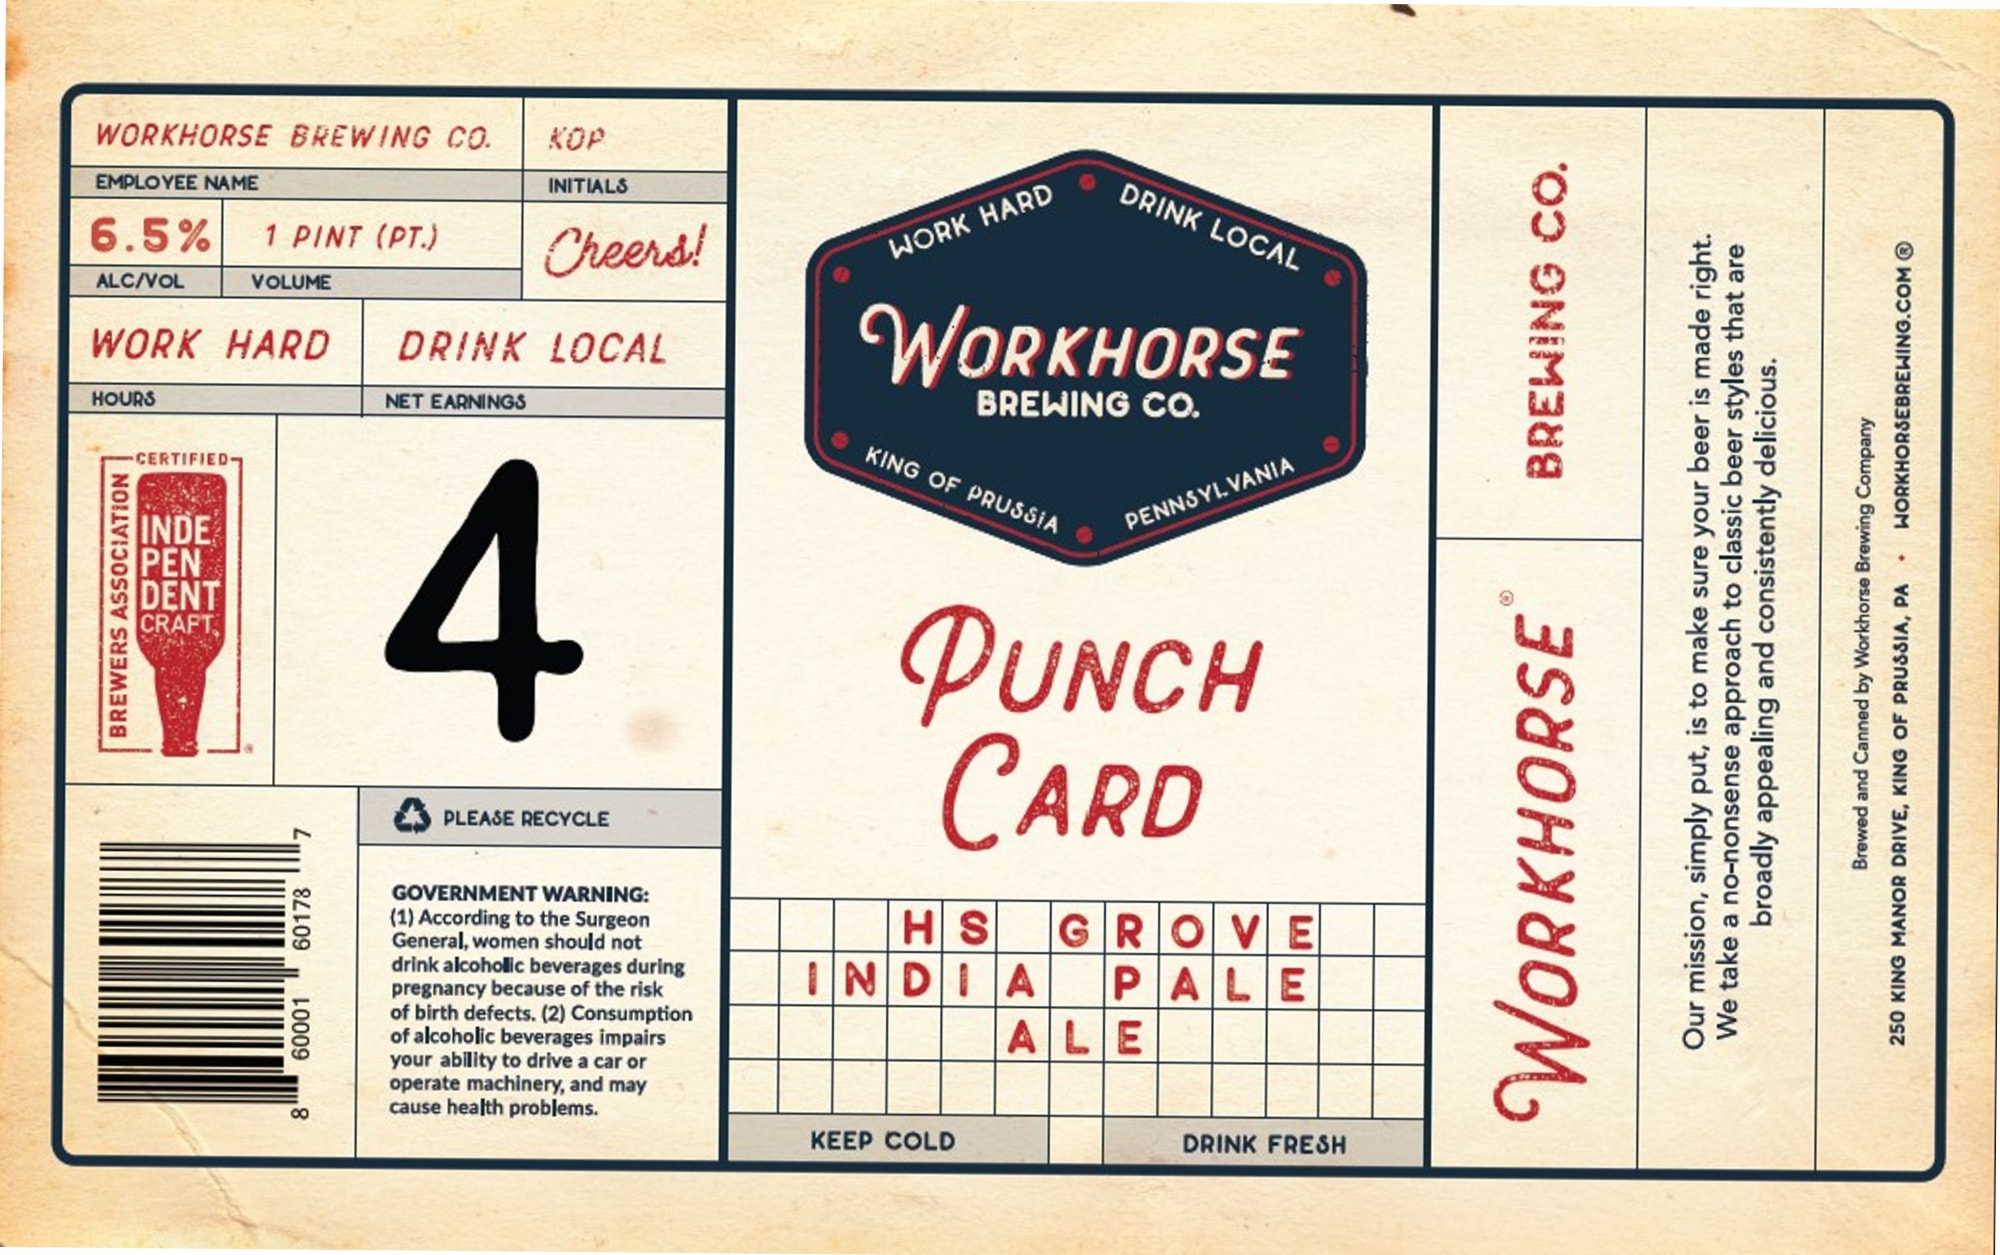 WORKHORSE BREWING CO.
KOP
EMPLOYEE NAME
INITIALS
6.5%
1 PINT (PT.)
Cheers!
ALC/VOL
VOLUME
WORK HARD
DRINK LOCAL
HOURS
NET EARNINGS
CERTIFIED
BREWERS ASSOCIATION
INDE
PEN
DENT
CRAFT
®
4
PLEASE RECYCLE
8 60001 60178 7
GOVERNMENT WARNING:
(1) According to the Surgeon
General, women should not
drink alcoholic beverages during
pregnancy because of the risk
of birth defects. (2) Consumption
of alcoholic beverages impairs
your ability to drive a car or
operate machinery, and may
cause health problems.
WORK HARD DRINK LOCAL
WORKHORSE
BREWING CO.
KING OF PRUSSIA PENNSYLVANIA
PUNCH
CARD
HS GROVE
INDIA PALE
ALE
KEEP COLD
DRINK FRESH
WORKHORSE®
BREWING CO.
Our mission, simply put, is to make sure your beer is made right.
We take a no-nonsense approach to classic beer styles that are
broadly appealing and consistently delicious.
Brewed and Canned by Workhorse Brewing Company
250 KING MANOR DRIVE, KING OF PRUSSIA, PA • WORKHORSEBREWING.COM®